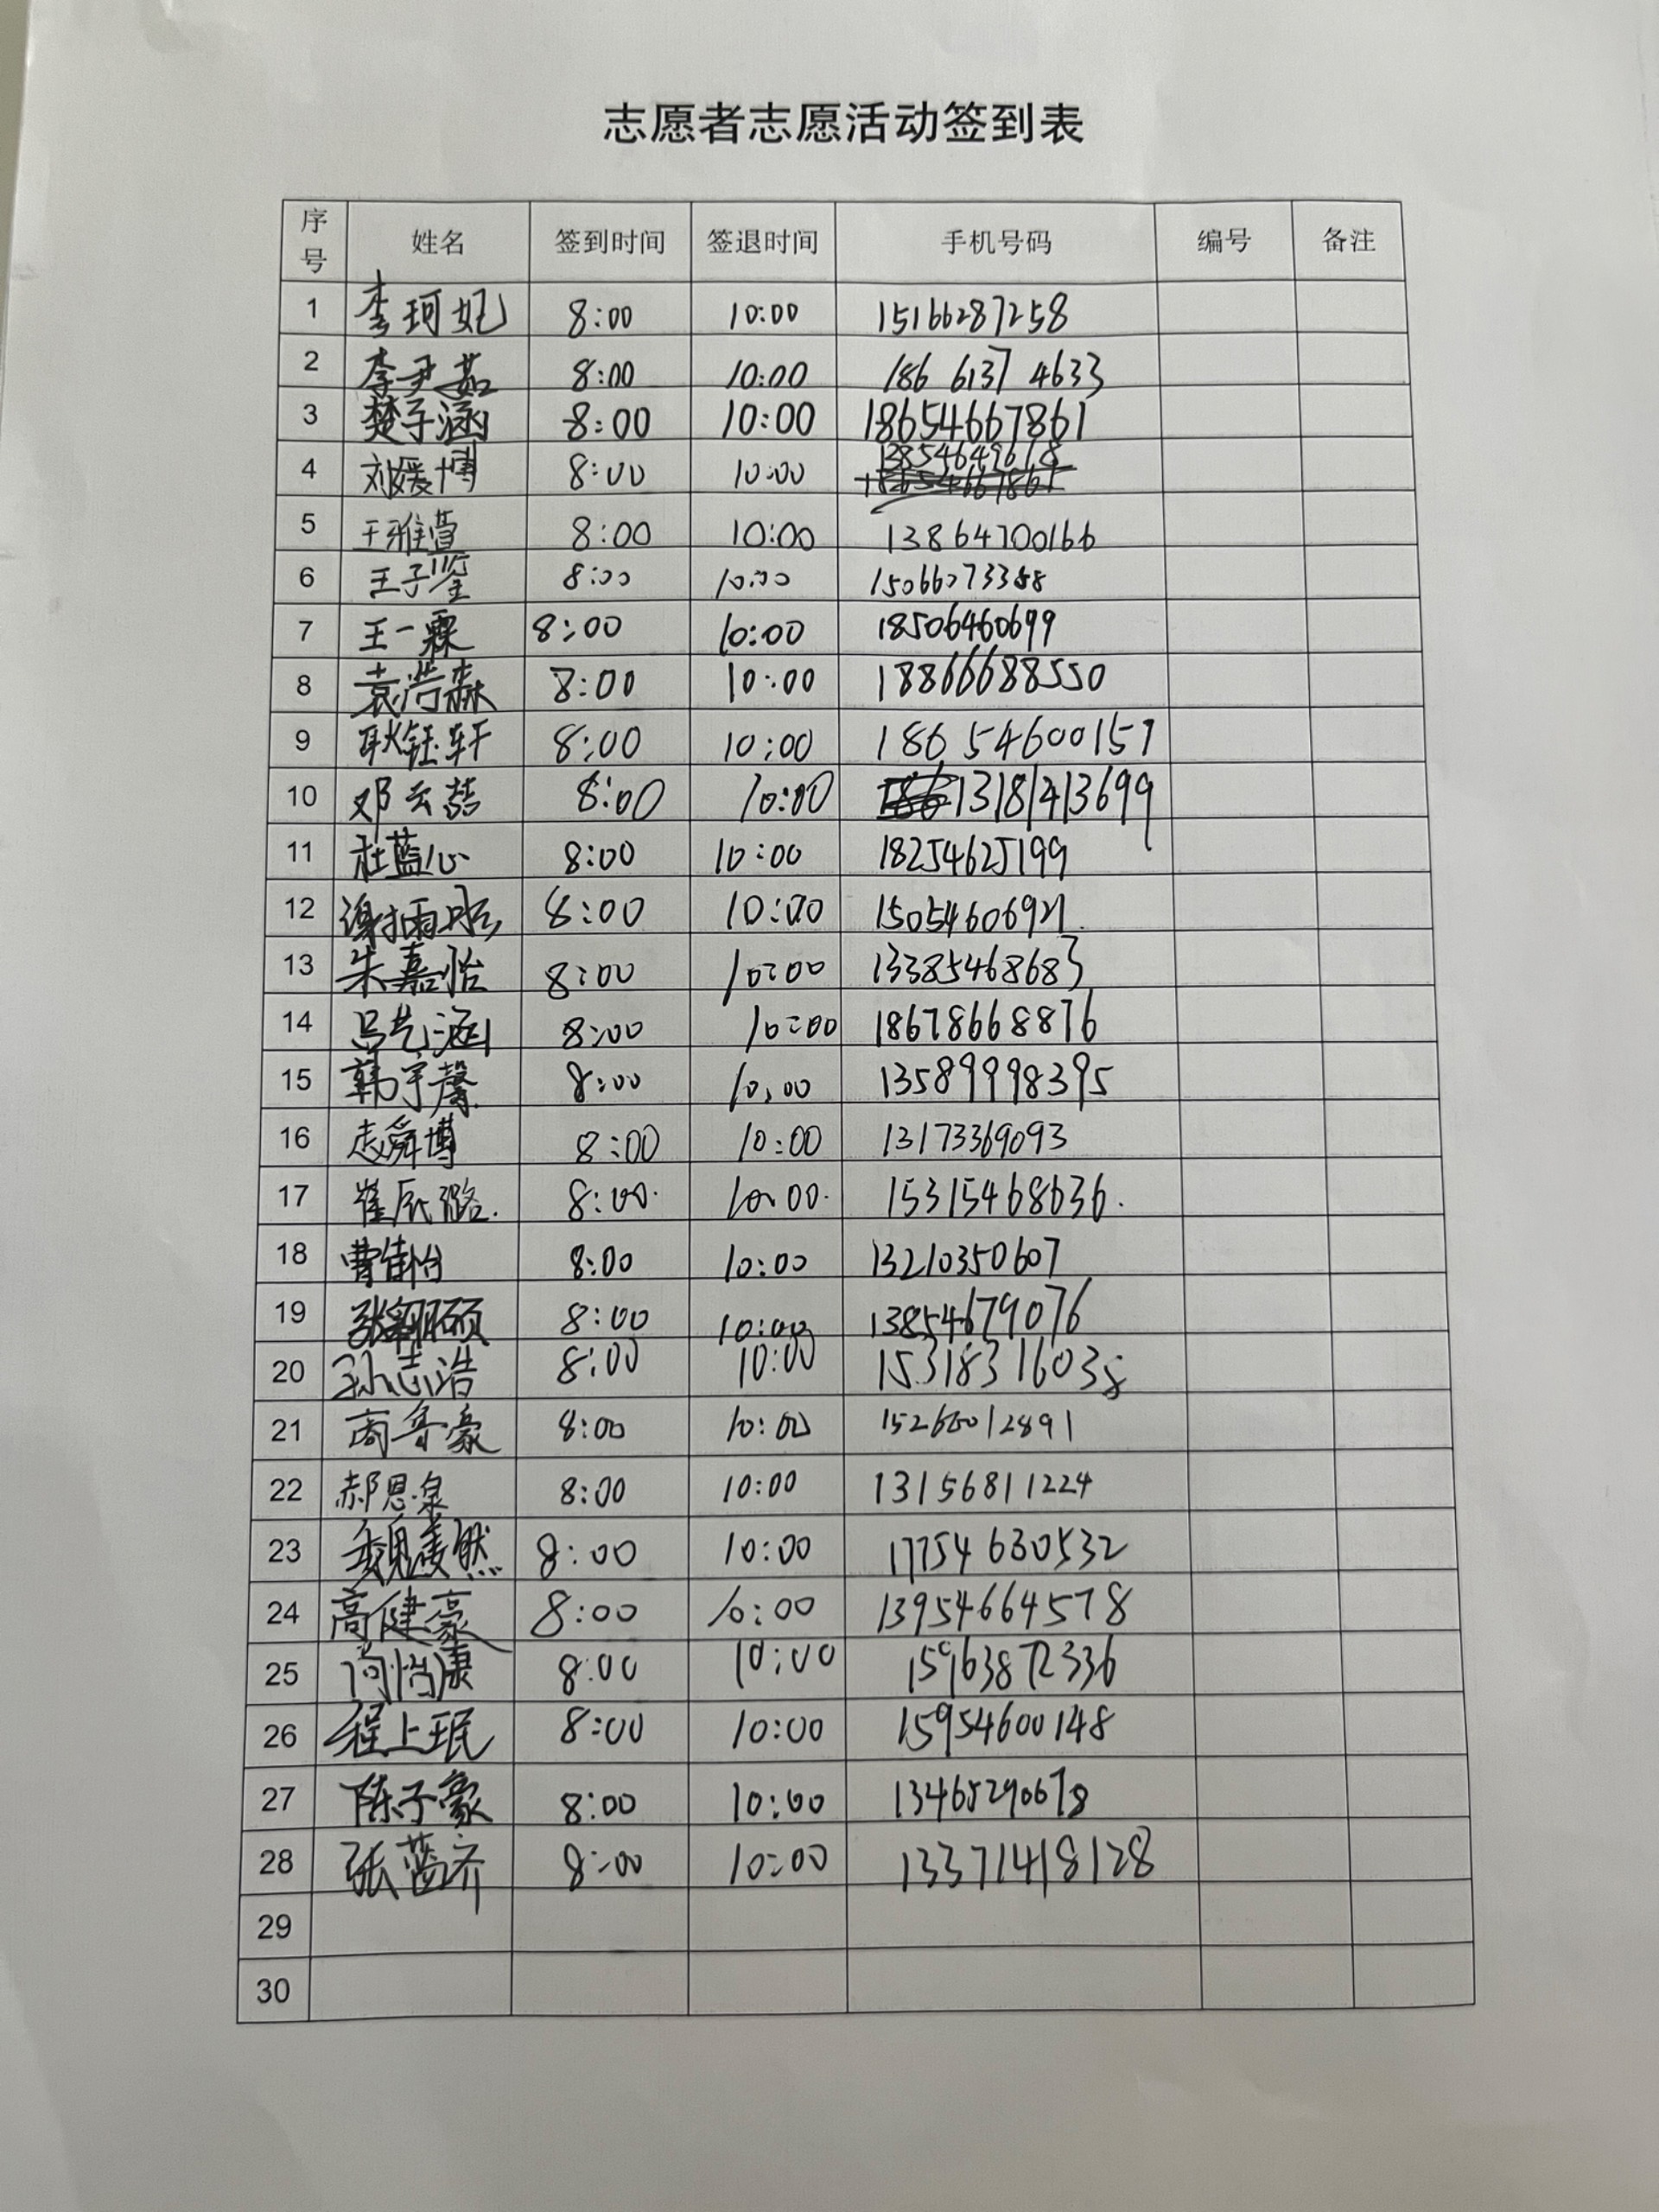 志愿者志愿活动签到表
序号 姓名 签到时间 签退时间 手机号码 编号 备注
1 李珂妃 8:00 10:00 15166287258
2 李尹茹 8:00 10:00 186 6137 4633
3 楚子涵 8:00 10:00 18654667861
4 刘媛博 8:00 10:00 13854649618
5 王雅萱 8:00 10:00 13864700166
6 王子鉴 8:00 10:00
7 王一霖 8:00 10:00 18506460699
8 袁浩森 8:00 10:00 18866688550
9 耿钰轩 8:00 10:00 186 54600157
10 邓云喆 8:00 10:00 13181413699
11 杜蓝心 8:00 10:00 18254625199
12 谢雨 8:00 10:00 15054606921
13 朱嘉怡 8:00 10:00 13385468683
14 吕艺涵 8:00 10:00 18678668876
15 韩宇馨 8:00 10:00 13589998395
16 舜博 8:00 10:00 13173369093
17 崔辰璐. 8:00. 10:00. 15315468636.
18 曹佳怡 8:00 10:00 13210350607
19 张翩硕 8:00 10:00 13854679076
20 孙志浩 8:00 10:00 15318316038
21 商鲁豪 8:00 10:00 15266012891
22 郝恩泉 8:00 10:00 13156811224
23 魏凌然 8:00 10:00 17754630532
24 高健豪 8:00 10:00 13954664578
25 尚怡康 8:00 10:00 15963872336
26 程上珉 8:00 10:00 15954600148
27 陈子豪 8:00 10:00 13465290678
28 张蓝齐 8:00 10:00 13371418128
29
30